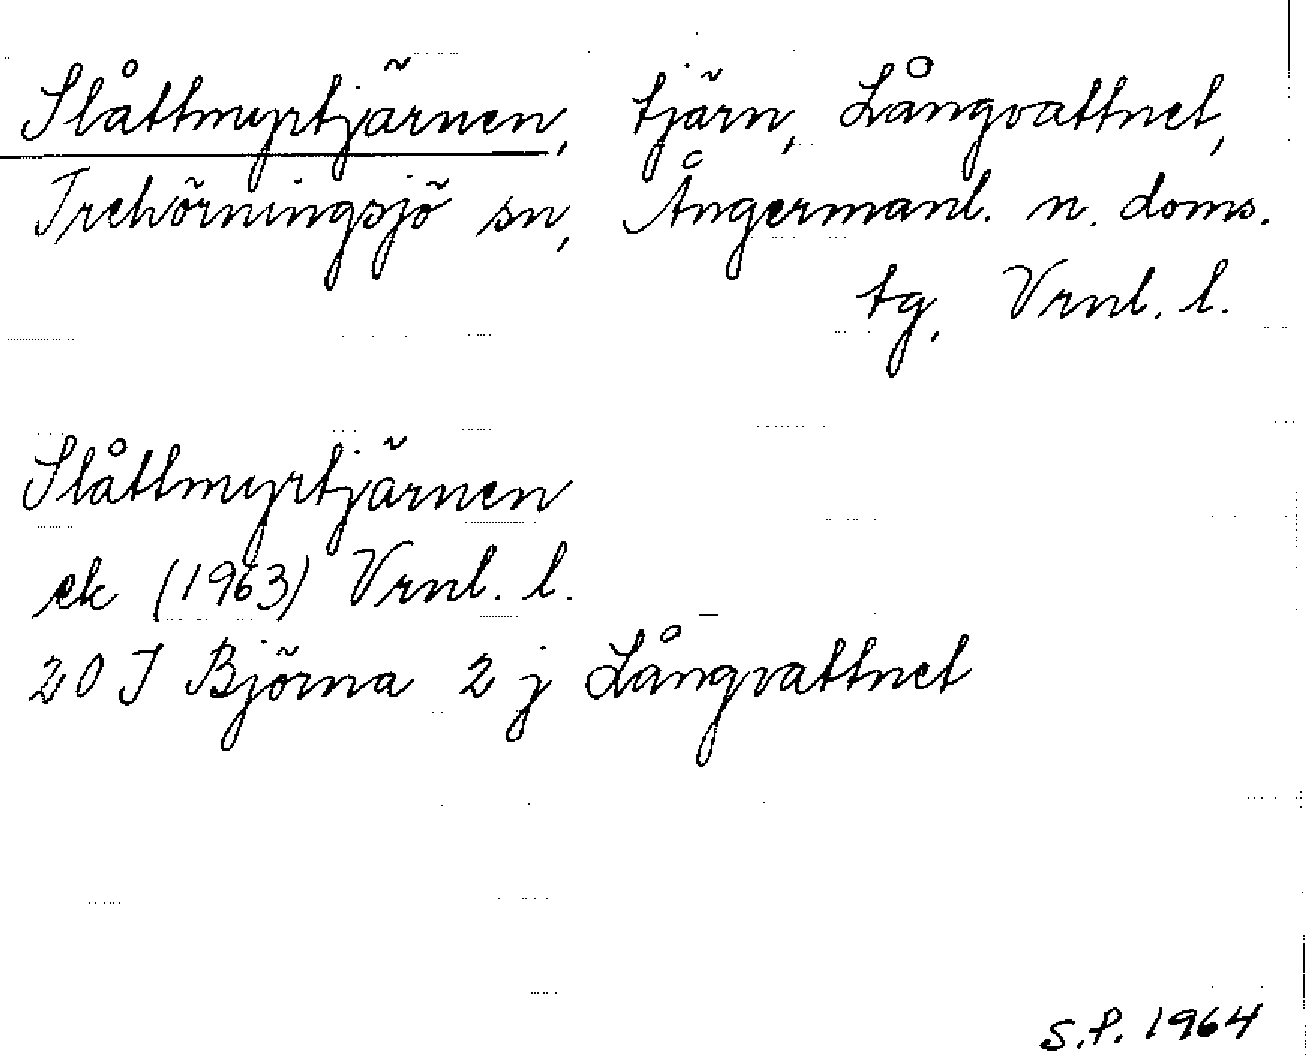 Slåttmyrtjärnen, tjärn, Långvattnet,
Trehörningsjö sn, Ångermanl. n. doms.
tg, Vrnl. l.
Slåttmyrtjärnen
ek (1963) Vrnl. l.
20 I Björna 2 j Långvattnet
S.P. 1964